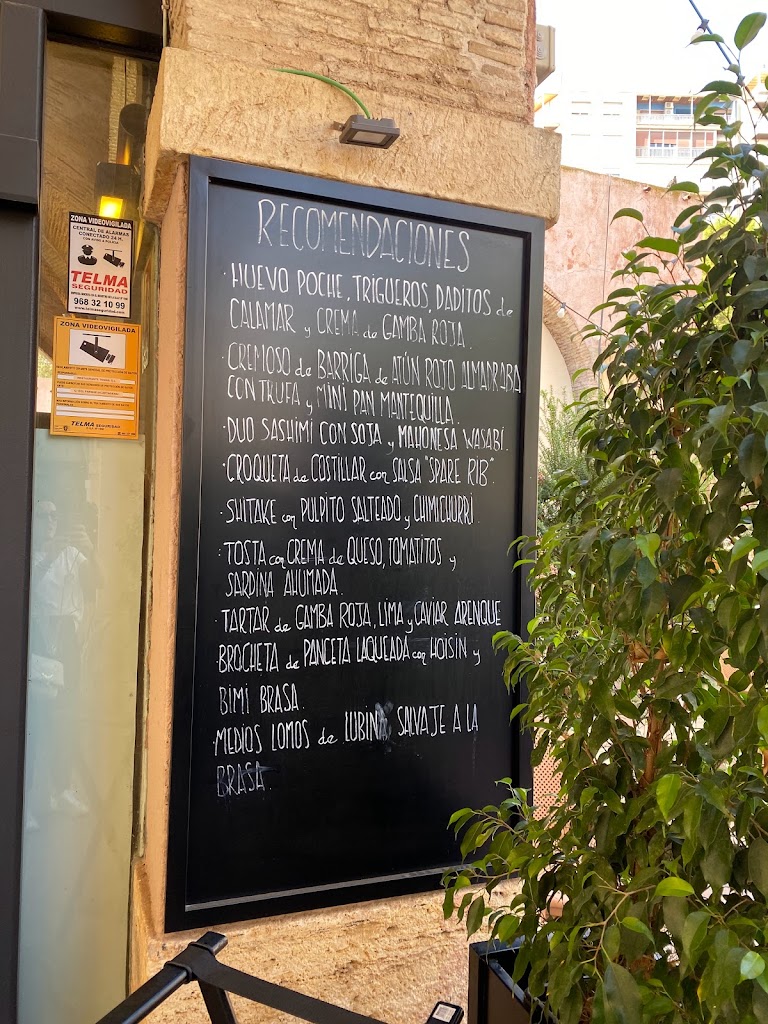 RECOMENDACIONES
· HUEVO POCHE, TRIGUEROS, DADITOS de
CALAMAR y CREMA de GAMBA ROJA.
· CREMOSO de BARRIGA de ATÚN ROJO ALMADRABA
CON TRUFA y MINI PAN MANTEQUILLA.
· DUO SASHIMI CON SOJA y MAHONESA WASABÍ.
· CROQUETA de COSTILLAR con SALSA "SPARE RIB".
· SHITAKE con PULPITO SALTEADO y CHIMICHURRI.
· TOSTA con CREMA de QUESO, TOMATITOS y
SARDINA AHUMADA.
· TARTAR de GAMBA ROJA, LIMA y CAVIAR ARENQUE
BROCHETA de PANCETA LAQUEADA con HOISIN y
BIMI BRASA.
· MEDIOS LOMOS de LUBINA SALVAJE A LA
BRASA.
ZONA VIDEOVIGILADA
CENTRAL DE ALARMAS
CONECTADO 24 H.
CON AVISO A POLICIA
TELMA
SEGURIDAD
968 32 10 99
ZONA VIDEOVIGILADA
TELMA SEGURIDAD